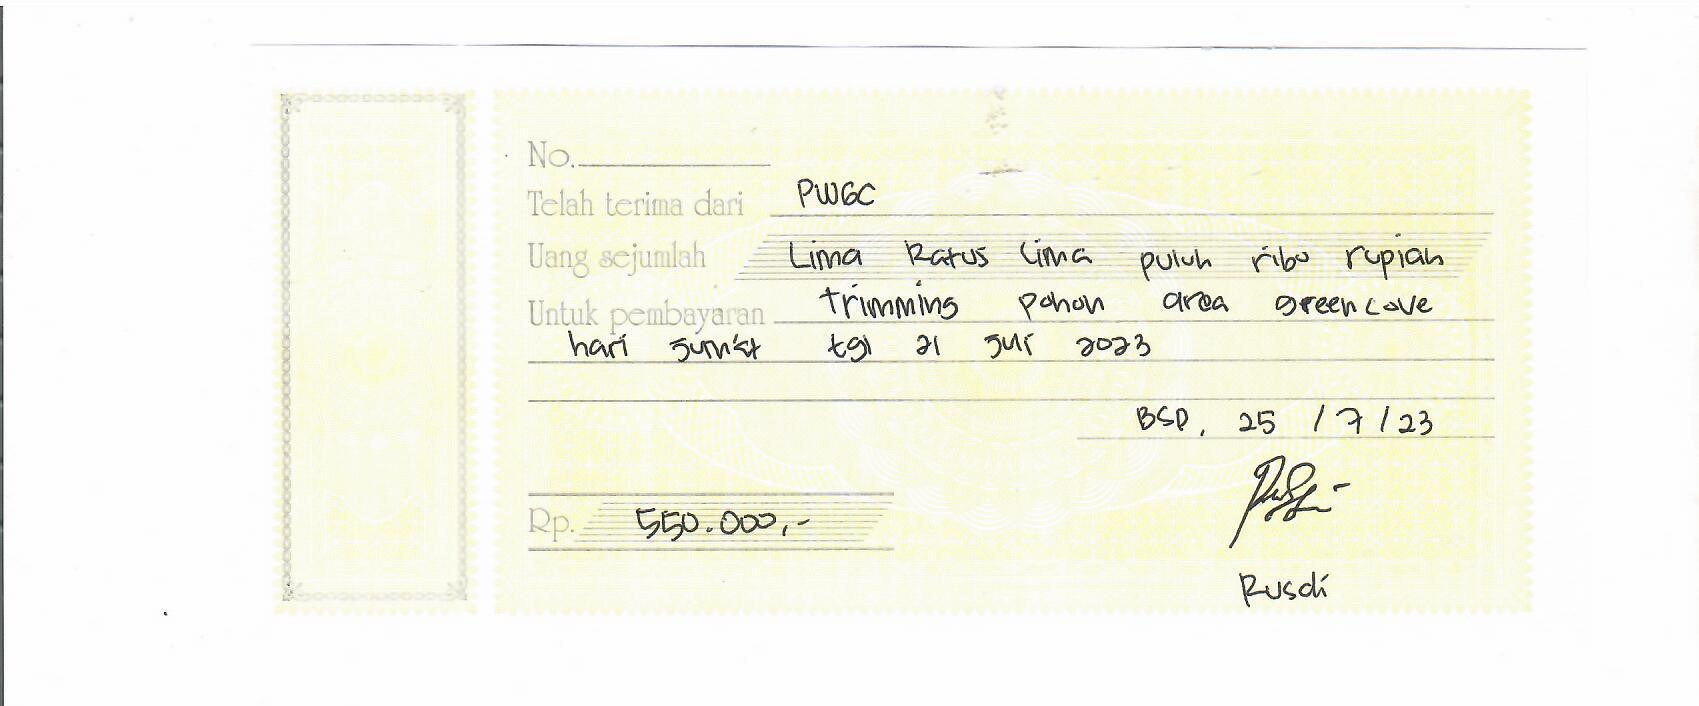 No.
Telah terima dari PWGC
Uang sejumlah Lima Ratus Lima puluh ribu rupiah
Untuk pembayaran trimming pohon area greencove
hari jum'at tgl 21 juli 2023
BSD, 25 / 7 / 23
Rp. 550.000,-
Rusdi